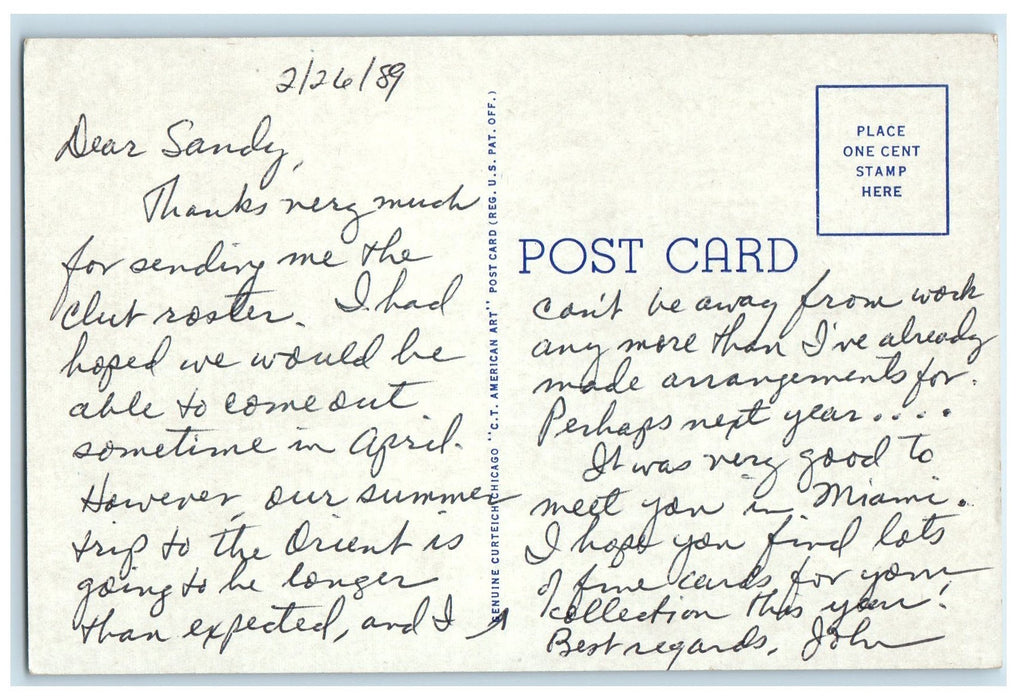 2/26/89
Dear Sandy,
Thanks very much
for sending me the
club roster. I had
hoped we would be
able to come out
sometime in April.
However, our summer
trip to the Orient is
going to be longer
than expected, and I
GENUINE CURTEICH-CHICAGO "C.T. AMERICAN ART" POST CARD (REG. U.S. PAT. OFF.)
PLACE
ONE CENT
STAMP
HERE
POST CARD
can't be away from work
any more than I've already
made arrangements for.
Perhaps next year....
It was very good to
meet you in Miami.
I hope you find lots
of fine cards for your
collection this year!
Best regards, John